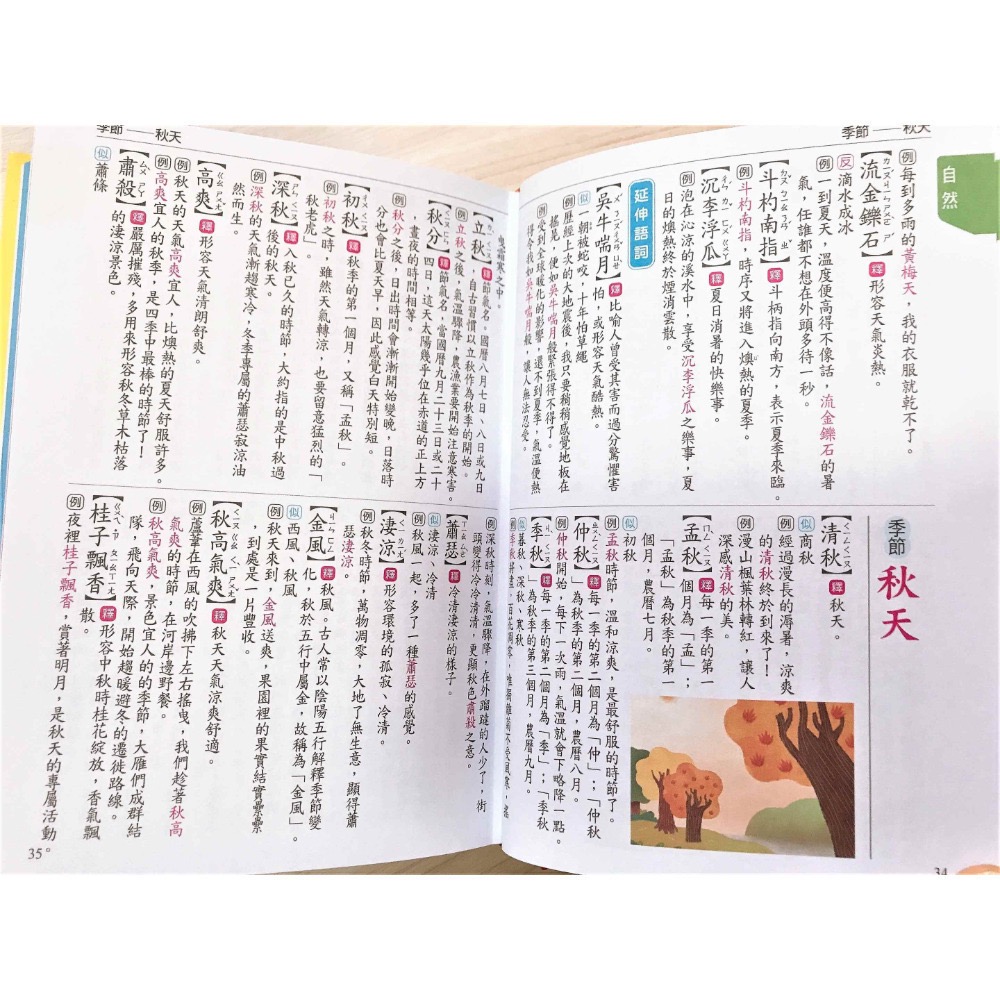 季節——秋天
自然
例每到多雨的黃梅天，我的衣服就乾不了。
【流金鑠石】釋形容天氣炎熱。
反滴水成冰
例一到夏天，溫度便高得不像話，流金鑠石的暑
氣，任誰都不想在外頭多待一秒。
【斗杓南指】釋斗柄指向南方，表示夏季來臨。
例斗杓南指，時序又將進入燠熱的夏季。
【沉李浮瓜】釋夏日消暑的快樂事。
例泡在沁涼的溪水中，享受沉李浮瓜之樂事，夏
日的燠熱終於煙消雲散。
延伸語詞
【吳牛喘月】釋比喻人曾受其害而過分驚懼害
怕，或形容天氣酷熱。
似一朝被蛇咬，十年怕草繩
例歷經上次的大地震後，我只要稍稍感覺地板在
搖晃，便如吳牛喘月般緊張得不得了。
例受到全球暖化的影響，還不到夏季，氣溫便熱
得令我如吳牛喘月般，讓人無法忍受。
季節
秋天
【清秋】釋秋天。
似商秋
例經過漫長的溽暑，涼爽
的清秋終於到來了！
例漫山楓葉林轉紅，讓人
深感清秋的美。
【孟秋】釋每一季的第一
個月為「孟」；
「孟秋」為秋季的第一
個月，農曆七月。
似初秋
例孟秋時節，溫和涼爽，是最舒服的時節了。
【仲秋】釋每一季的第二個月為「仲」；「仲秋
」為秋季的第二個月，農曆八月。
例仲秋開始，每下一次雨，氣溫就會下略降一點
【季秋】釋每一季的第三個月為「季」；「季秋
」為秋季的第三個月，農曆九月。
似暮秋、深秋、寒秋
34
季節——秋天
曳蕭寒之中。
【立秋】釋節氣名。國曆八月七日、八日或九日
，自古習慣以立秋作為秋季的開始。
例立秋之後，氣溫驟降，農漁業要開始注意寒害。
【秋分】釋節氣名，當國曆九月二十三日或二十
四日，這天太陽幾乎位在赤道的正上方
，晝夜的時間相等。
例秋分之後，日出時間會漸漸開始變晚，日落時
分也會比夏天早，因此感覺白天特別短。
【初秋】釋秋季的第一個月，又稱「孟秋」。
例初秋之時，雖然天氣轉涼，也要留意猛烈的「
秋老虎」。
【深秋】釋入秋已久的時節，大約指的是中秋過
後的秋天。
例深秋的天氣漸趨寒冷，冬季專屬的蕭瑟寂涼油
然而生。
【高爽】釋形容天氣清朗舒爽。
例秋天的天氣高爽宜人，比燠熱的夏天舒服許多。
例高爽宜人的秋季，是四季中最棒的時節了！
【肅殺】釋嚴厲摧殘，多用來形容秋冬草木枯落
的淒涼景色。
似蕭條
例深秋時刻，氣溫驟降，在外蹓躂的人少了，街
頭變得冷冷清清，更顯秋色肅殺之意。
【蕭瑟】釋冷清淒涼的樣子。
似淒涼、冷清
例秋風一起，多了一種蕭瑟的感覺。
【淒涼】釋形容環境的孤寂、冷清。
例秋冬時節，萬物凋零，大地了無生意，顯得蕭
瑟淒涼。
【金風】釋秋風。古人常以陰陽五行解釋季節變
化，秋於五行中屬金，故稱為「金風」。
似西風、秋風
例秋天來到，金風送爽，果園裡的果實結實纍纍
，到處是一片豐收。
【秋高氣爽】釋秋天天氣涼爽舒適。
例蘆葦在西風的吹拂下左右搖曳，我們趁著秋高
氣爽的時節，在河岸邊野餐。
例秋高氣爽、景色宜人的的季節，大雁們成群結
隊，飛向天際，開始趨暖避冬的遷徙路線。
【桂子飄香】釋形容中秋時桂花綻放，香氣飄
散。
例夜裡桂子飄香，賞著明月，是秋天的專屬活動
。
35